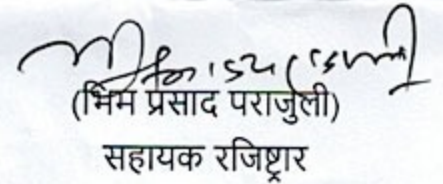 (भिम प्रसाद पराजुली)
सहायक रजिष्ट्रार